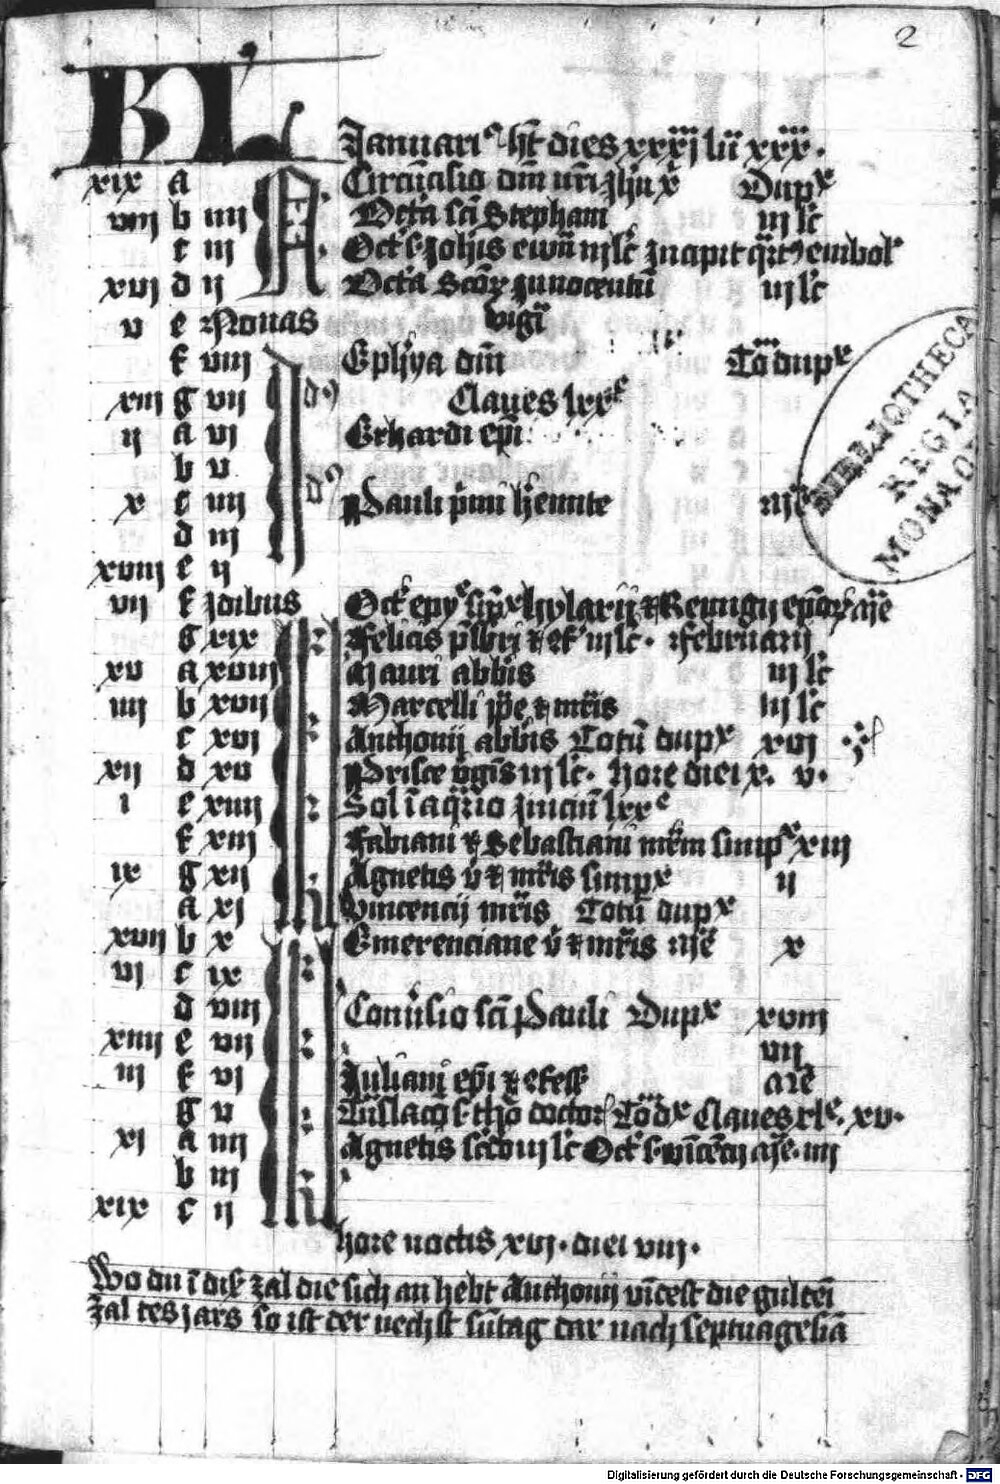 2
KL
Januari⁹ ht dies xxxj lu xxx.
xix a Circūcisio dm̄ nr̄i Dupˣ
viii b iiii Octa scī Stephani iij lc̄
c iii Oct s Joh̄is ewā iij lc̄ Incipit embol
xvi d ii Octa Scōr Innocentū iij lc̄
v e Nonas vigā
f viii Epiph̄ya dm̄ Tō dupˣ
xiii g vii Claues lxxᵉ
ii a vi Erhardi ep̄i
b v
x c iiii Pauli p̄mi h̄emite
d iii
xviii e ii
vii f Idibus Oct epyᵉ sīpˣ hylarij & Remigij
g xix Felicis & iij lc̄. Februarij
xv a xviii Mauri abb̄is iij lc̄
iiii b xvii Marcelli & mr̄is iij lc̄
c xvi Anthonij abb̄is Totū dupˣ xvi
xii d xv Prisce v̄gīs iij lc̄. hore diei x. v.
i e xiiii Sol ī aq̄rio lxxᵉ
f xiii Fabiani & Sebastiani mr̄m simpˣ xiii
ix g xii Agnetis v̄ & mr̄is simpˣ ii
a xi Vincencij mr̄is Totū dupˣ
xvii b x Emerenciane v̄ & mr̄is x
vi c ix
d viii Conūsio scī Pauli Dupˣ xviii
xiiii e vii vii
iii f vi Juliani ep̄i & cfess̄
g v doctor Tō dˣ Claues xlᵉ. xv.
xi a iiii Agnetis scd̄o iij lc̄ Oct s. vincēcij iiii
b iii
xix c ii
hore noctis xvi. diei viii.
Wo du ī dis̄ zal die sich an hebt Anthonij die gulten̄
zal des jars so ist der nechst sūtag dar nach septuagesiā
BIBLIOTHECA
REGIA
MONACENSIS
Digitalisierung gefördert durch die Deutsche Forschungsgemeinschaft - DFG